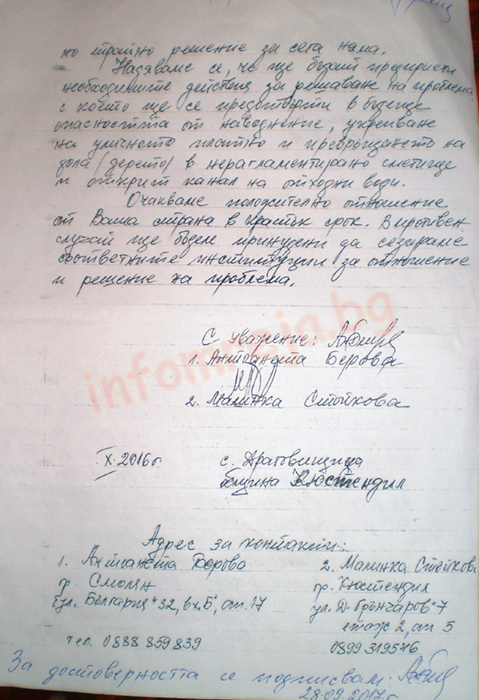 но трайно решение за сега няма.
Надяваме се, че ще бъдат предприети
необходимите действия за решаване на проблема,
с което ще се предотврати в бъдеще
опасността от наводнение, укрепване
на уличното платно и превръщането на
дола /дерето/ в нерагламентирано сметище
и открит канал на отходни води.
Очакваме положително отношение
от Ваша страна в кратък срок. В противен
случай ще бъдем принудени да сезираме
съответните институции за отношение
и решение на проблема.
С уважение:
1. Антоанета Берова
2. Малинка Стойкова
X.2016г.
с. Драговищица
община Кюстендил
Адрес за контакти:
1. Антоанета Берова
2. Малинка Стойкова
гр. Смолян
гр. Кюстендил
бул. "България" 32, вх. "Б", ап. 17
ул. "Д. Грънчаров" 7
етаж 2, ап 5
тел. 0888 859 839
0899 319546
За достоверността се подписвам:
28.09.2017г.
infomreja.bg